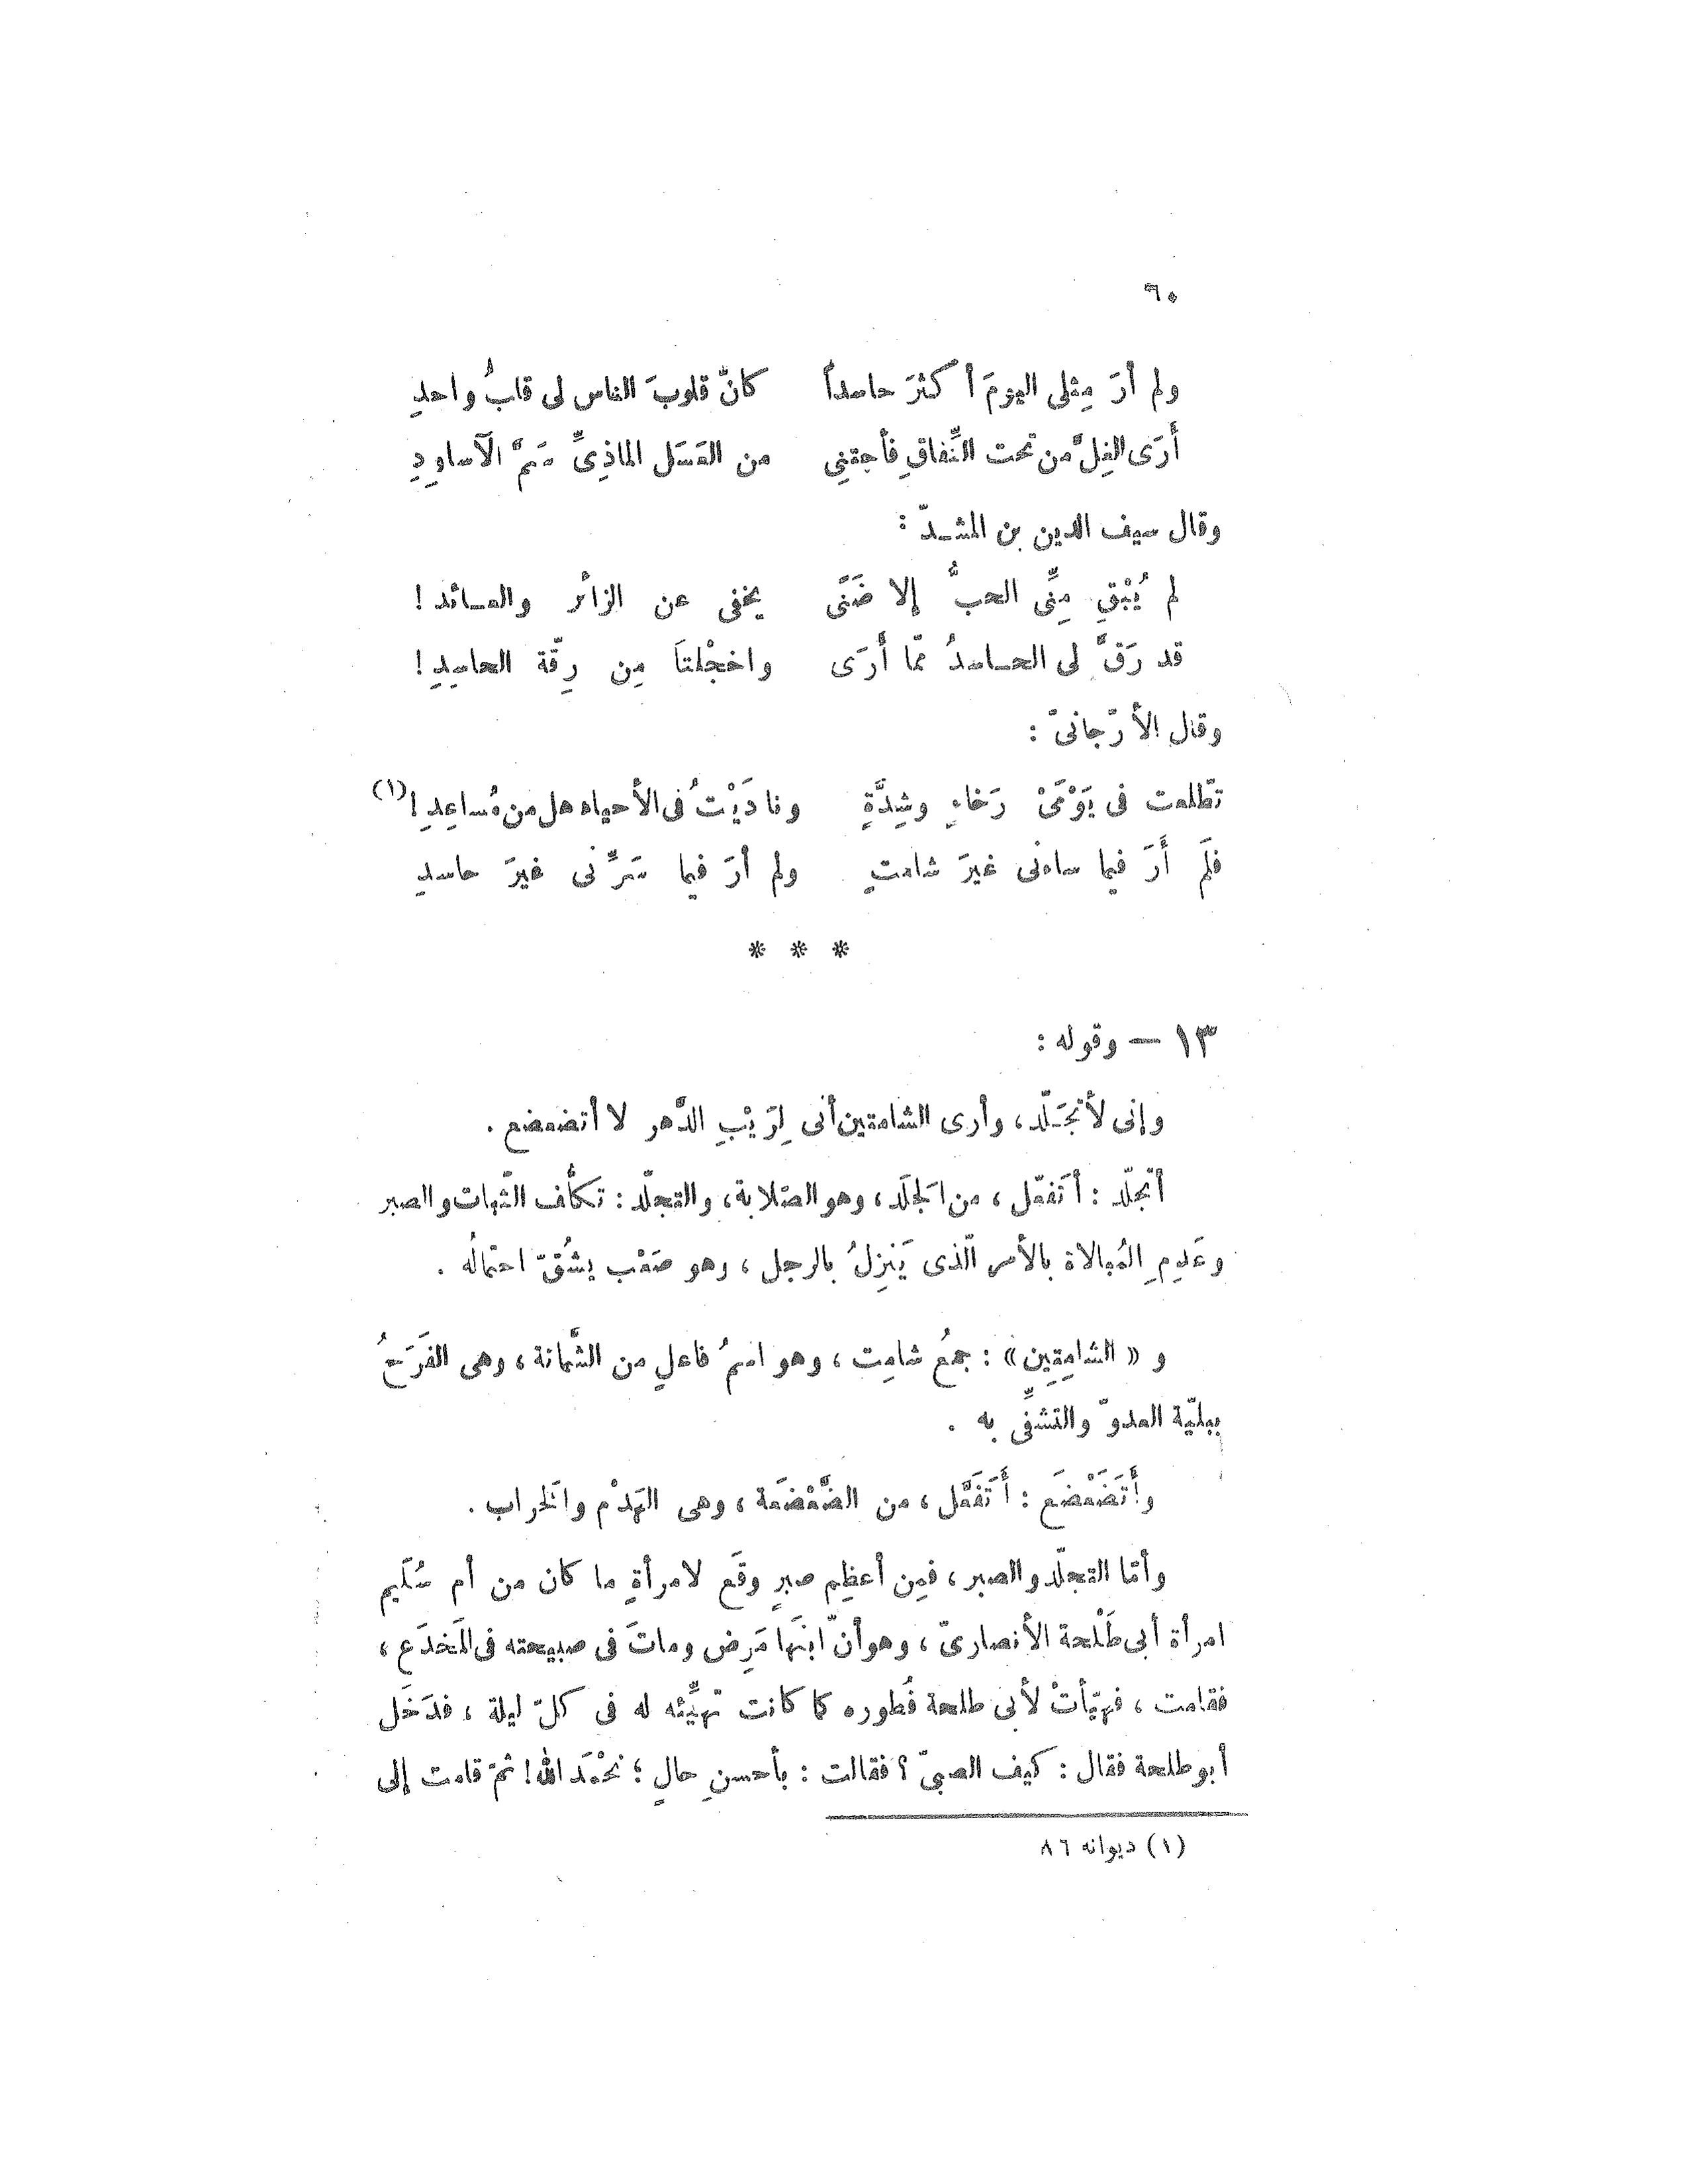 ٦٠
ولم أرَ مِثلى اليومَ أكثرَ حاسداً كانّ قلوبَ الناس لى قلبُ واحدِ
أَرَى الغِلَّ من تحت النِّفاقِ فأجتنِى من العَسَل الماذِىِّ سَمَّ الآساوِدِ
وقال سيف الدين بن المشدّ :
لم يُبْقِ مِنِّى الحبُّ إلا ضَنًى يخفى عن الزائر والعائد !
قد رَقَّ لى الحاسدُ ممّا أَرَى واخجْلتاَ مِن رِقّة الحاسِدِ !
وقال الأرّجانىّ :
تطّلعت فى يَوْمَىْ رَخاءٍ وشِدَّةٍ ونادَيْتُ فى الأحياء هل من مُساعِدِ !(١)
فلَم أَرَ فيما ساءنى غيرَ شامتٍ ولم أرَ فيما سَرَّنى غيرَ حاسدِ
* * *
١٣ — وقوله :
وإنى لأتجَلّد، وأرى الشامتين أنى لِرَيْبِ الدَّهر لا أتضعضع .
أتجلّد : أتَفعّل ، من الجَلَد، وهو الصّلابة، والتجلّد : تكلُّف الثّبات والصبر
وعَدِمِ المُبالاة بالأمر الّذى يَنزِلُ بالرجل ، وهو صَعْب يشُقّ احتمالُه .
و « الشامِتِين» : جمعُ شامِت ، وهو اسمُ فاعلٍ من الشَّماتة ، وهى الفَرَحُ
ببليّة العدوّ والتشفِّى به .
وأَتَضَعْضَع : أَتَفَعَّل ، من الضَّعْضَعة ، وهى الهَدْم والخَراب .
وأمّا التجلّد والصبر، فمِن أعظِم صبرٍ وقَع لامرأةٍ ما كان من أم سُلَيم
امرأة أبى طَلْحة الأنصارىّ ، وهو أنّ ابنَها مَرِض وماتَ فى صبيحته فى المَخدَع ،
فقامت ، فهيّأتْ لأبى طلحة فُطوره كما كانت تهيِّئه له فى كلّ ليلة ، فدَخَل
أبو طلحة فقال : كيف الصبىّ ؟ فقالت : بأحسنِ حالٍ ؛ نحْمَد الله! ثمّ قامت إلى
(١) ديوانه ٨٦